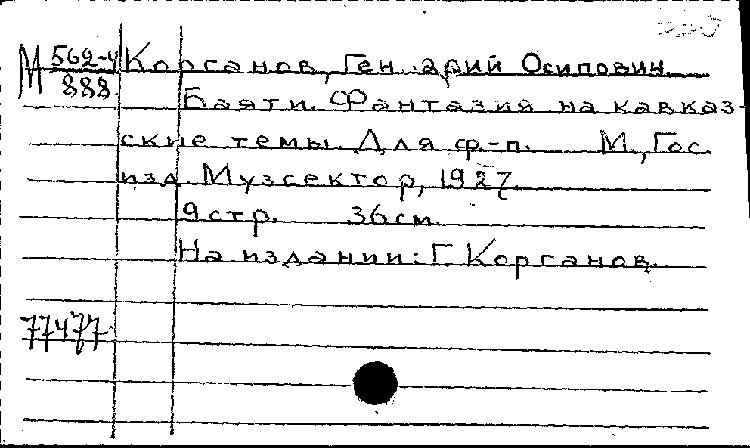 М 562-4 Корганов, Ген арий Осипович
888
Баяти. Фантазия на кавказ-
ские темы. Для ф.-п. М., Гос.
изд. Музсектор, 1927.
9 стр. 36 см.
На издании: Г. Корганов.
77477